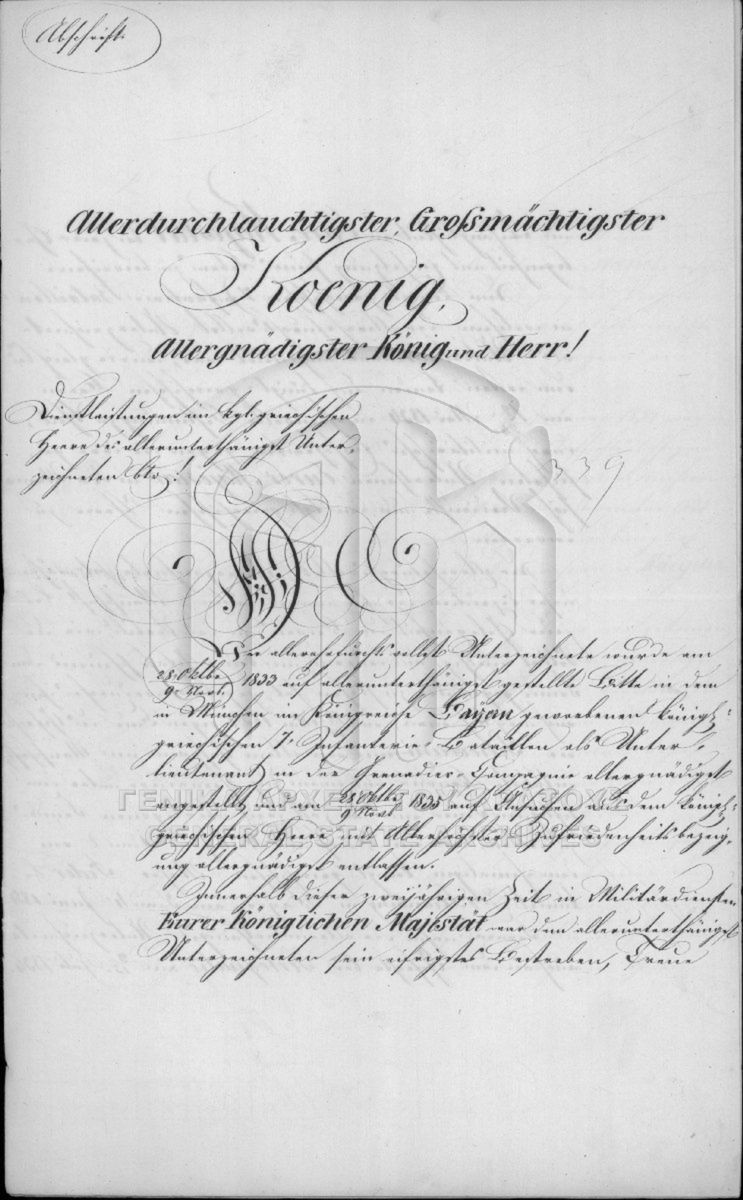 Abschrift.
Allerdurchlauchtigster, Großmächtigster
Koenig,
Allergnädigster König und Herr!
Dienstleistungen im kgl. griechischen
Heere des allerunterthänigst Unter-
zeichneten btr!
339
Der allerehrfurchtsvollst Unterzeichnete wurde am
28. Oktbr / 9. Novb. 1833 auf allerunterthänigst gestellte Bitte in dem
in München im Königreiche Bayern geworbenen königl:
griechischen 7. Infanterie-Bataillon als Unter-
lieutenant in der Grenadier-Compagnie allergnädigst
angestellt und am 28. Oktbr / 9. Novb 1835 auf Ansuchen aus dem königl:
griechischen Heere mit Allerhöchster Zufriedenheitsbezeig-
ung allergnädigst entlassen.
Innerhalb dieser zweijährigen Zeit in Militärdiensten
Eurer Königlichen Majestät war dem allerunterthänigst
Unterzeichneten sein eifrigstes Bestreben, Treue
ΓΕΝΙΚΑ ΑΡΧΕΙΑ ΤΟΥ ΚΡΑΤΟΥΣ
GENERAL STATE ARCHIVES